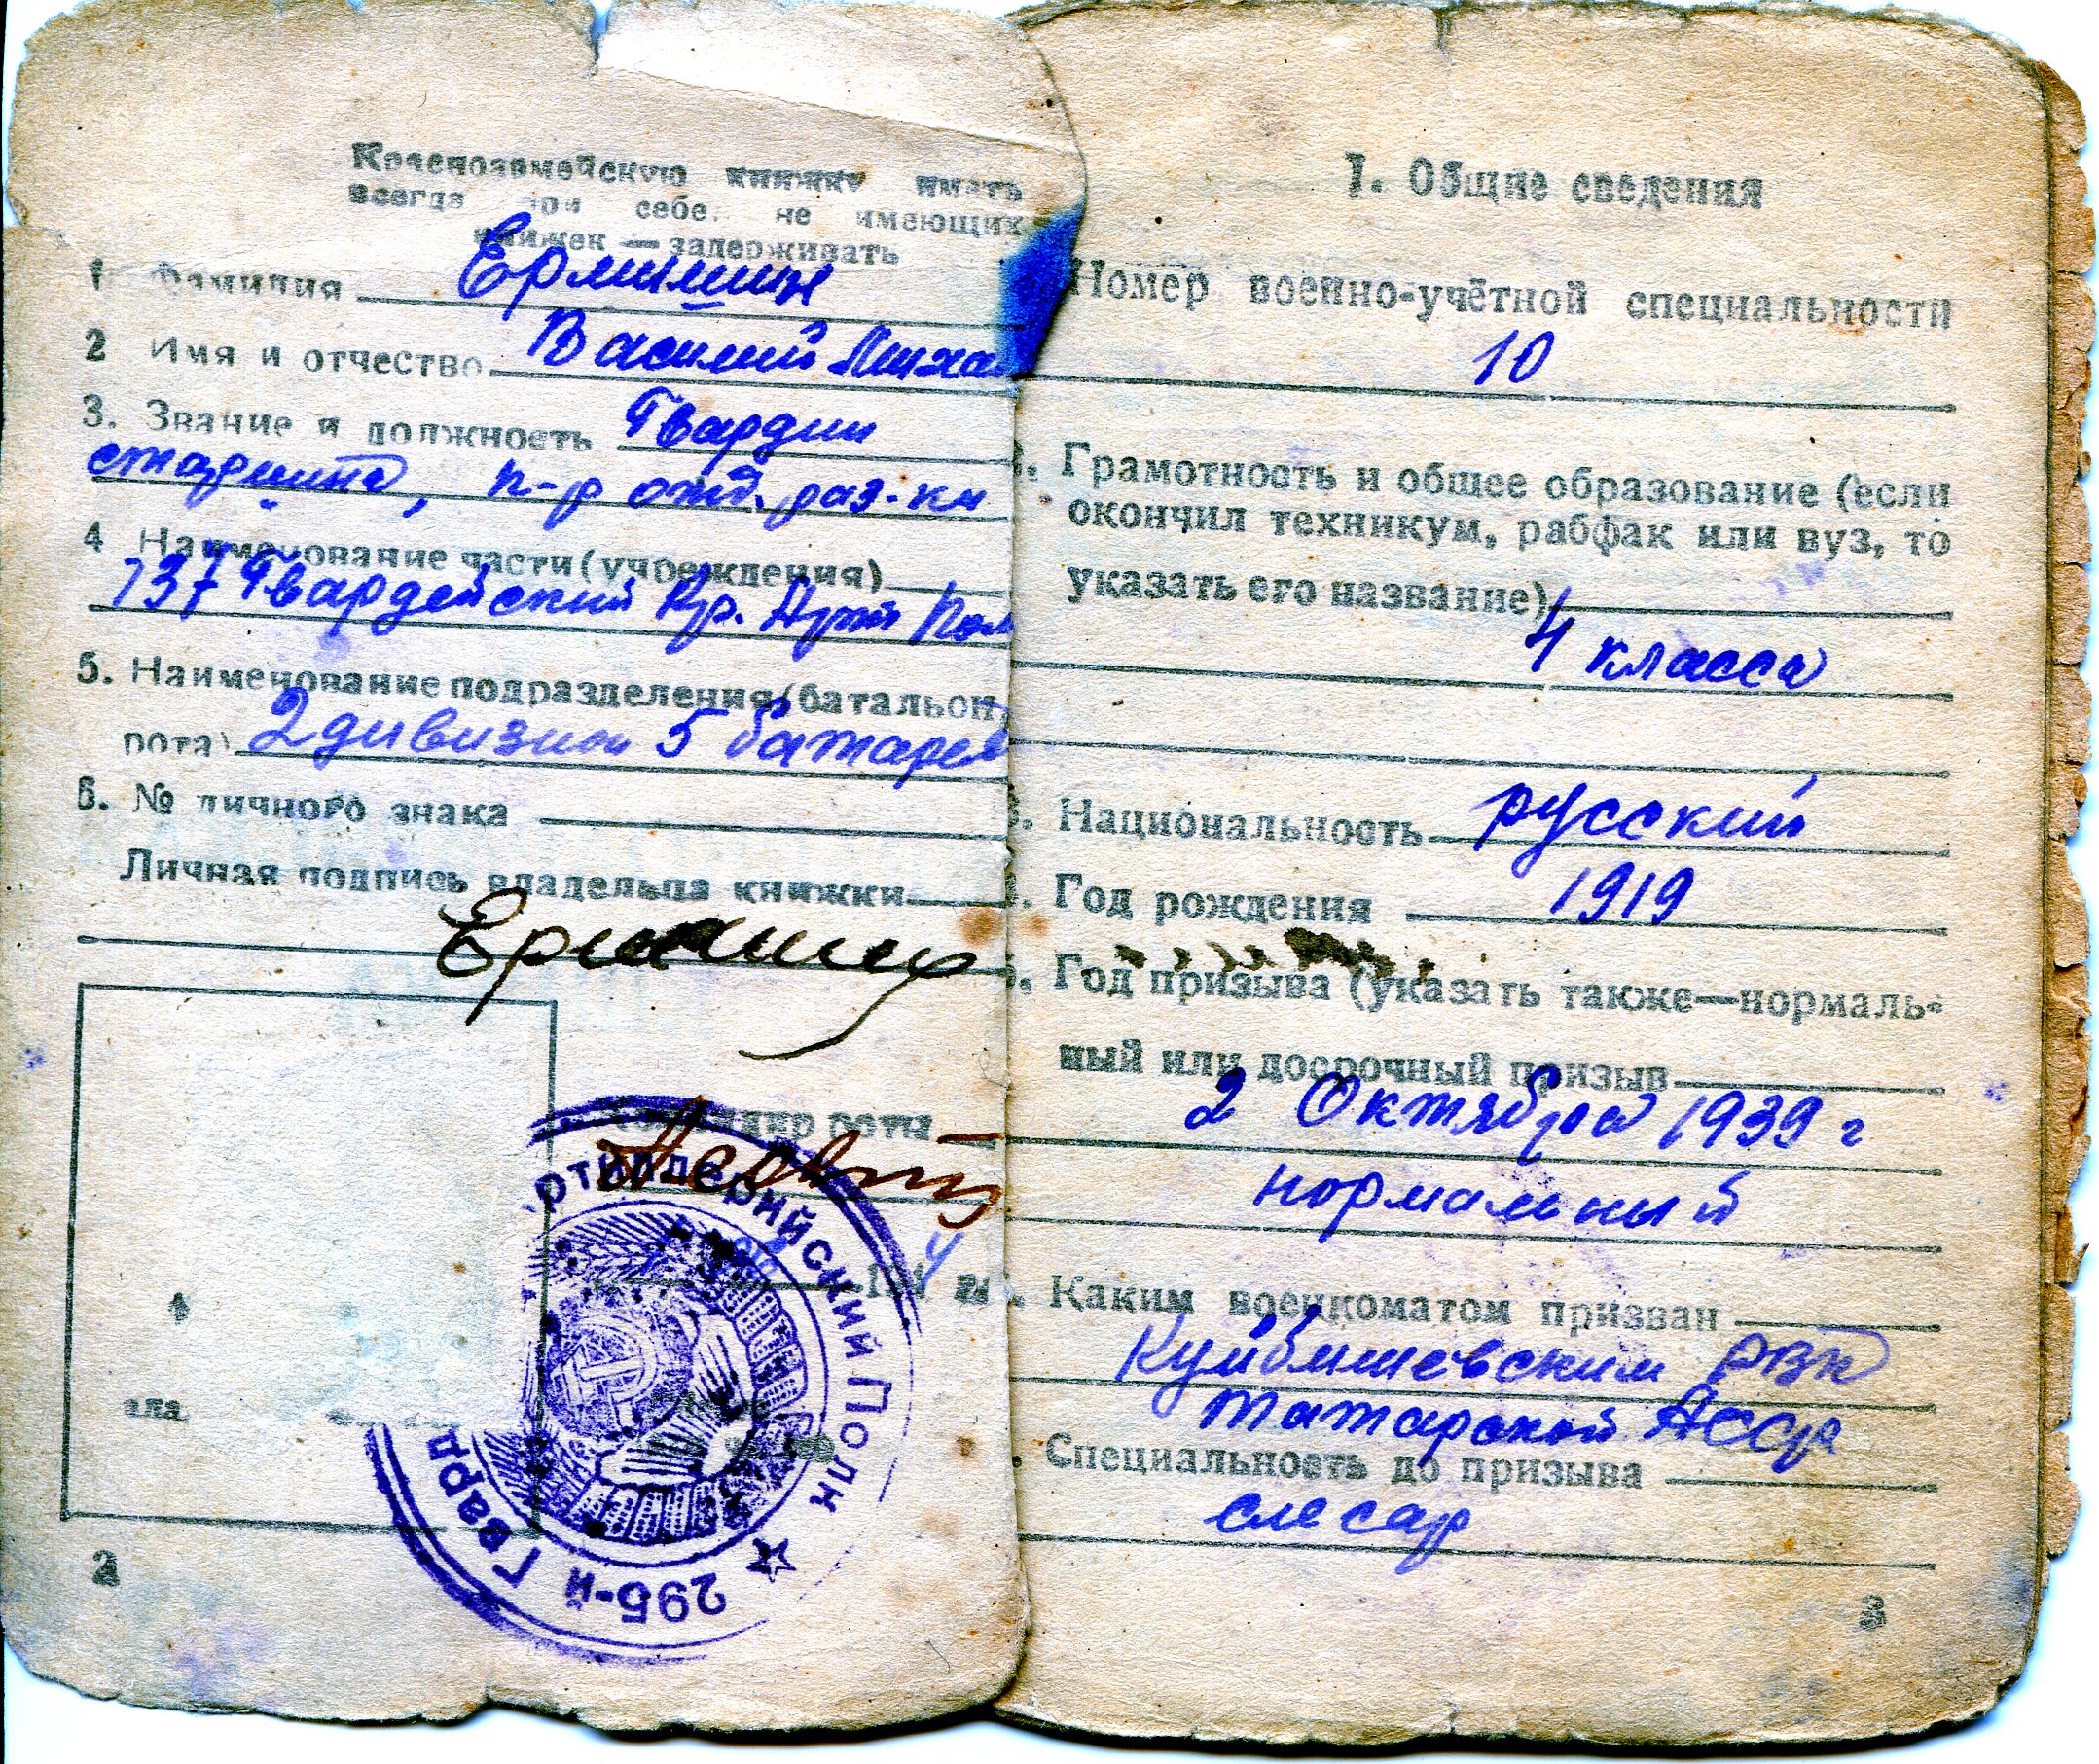 Красноармейскую книжку иметь
всегда при себе. не имеющих
книжек — задерживать
1 Фамилия Ермишин
2 Имя и отчество Василий Миха
3. Звание и должность Гвардии
старшина, к-р отд. раз-ки
4 Наименование части (учреждения)
137 Гвардейский Кр. Арт Пол
5. Наименование подразделения (батальон,
рота) 2 дивизион 5 батарея
6. № личного знака
Личная подпись владельца книжки
Ермишин
Командир роты
194 г.
295-й Гвард ртиллерийский Полк
2
I. Общие сведения
Номер военно-учётной специальности
10
Грамотность и общее образование (если
окончил техникум, рабфак или вуз, то
указать его название)
4 класса
3. Национальность русский
Год рождения 1919
5. Год призыва (указать также—нормаль-
ный или досрочный призыв
2 Октября 1939 г
нормальный
Каким военкоматом призван
Куйбышевским РВК
Татарской АССР
Специальность до призыва
слесар
3